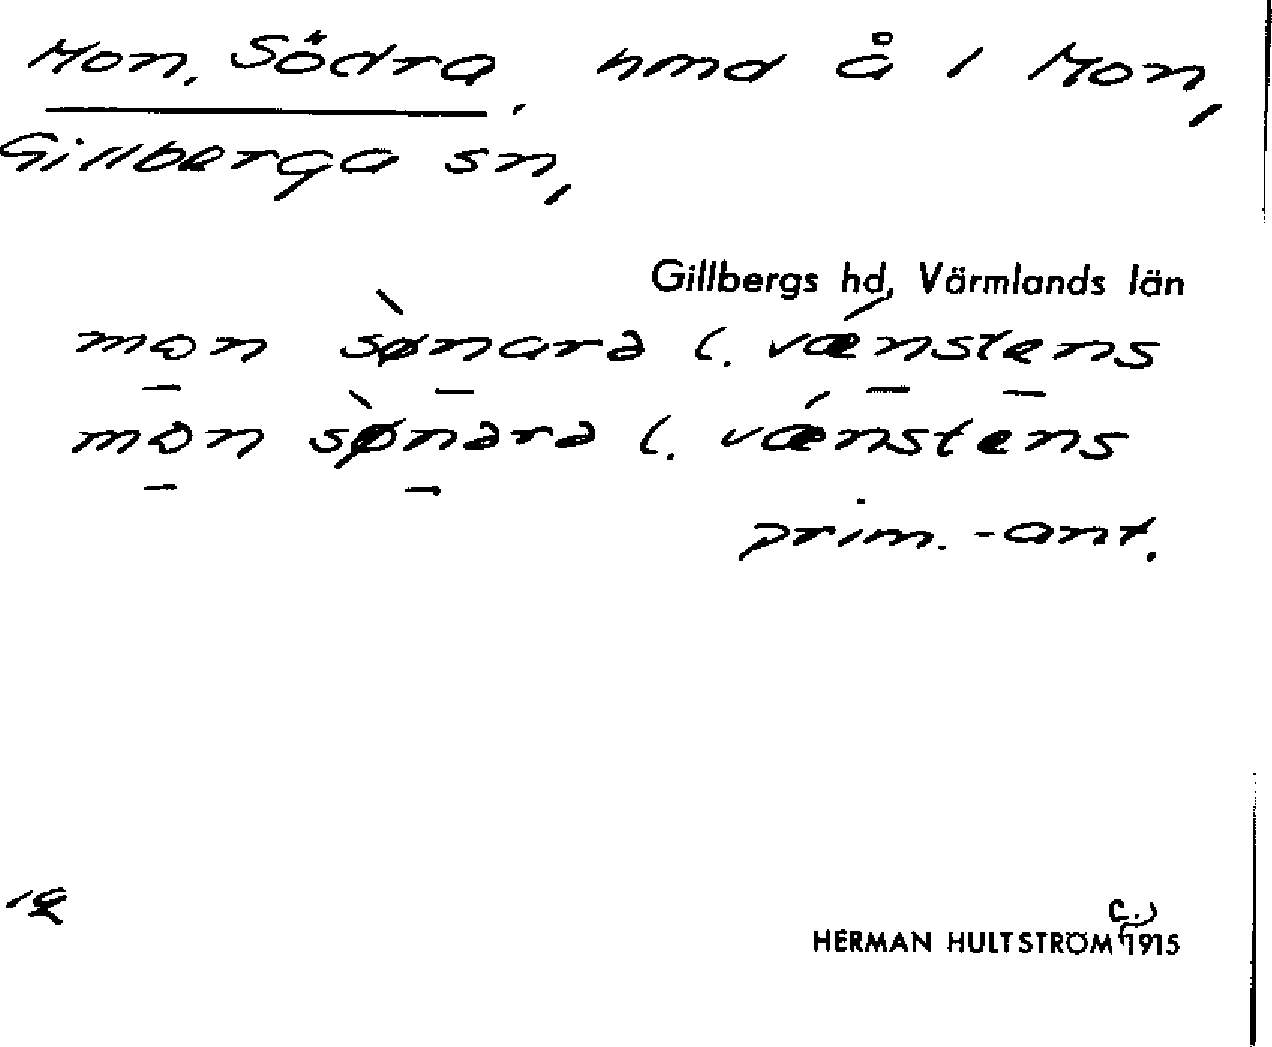 Mon, Södra, hmd å 1 Mon,
Gillberga sn,
Gillbergs hd, Värmlands län
mon sø̀nara l. vǽnstens
mon sø̀nərə l. vǽnstens
prim.-ant.
HERMAN HULTSTRÖM c. 1915